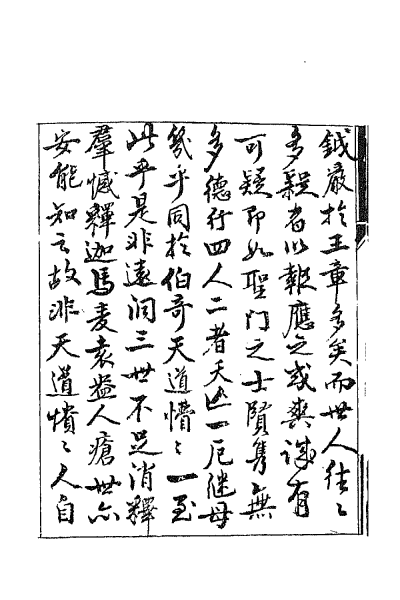 鉞嚴於王章多矣而世人往〻
多疑者以報應之或爽誠有
可疑即如聖門之士賢雋無
多德行四人二者夭亡一厄继母
幾乎同於伯奇天道懵〻一至
此乎是非遠洞三世不足消釋
羣憾釋迦馬麦袁盎人瘡世亦
安能知之故非天道憒〻人自